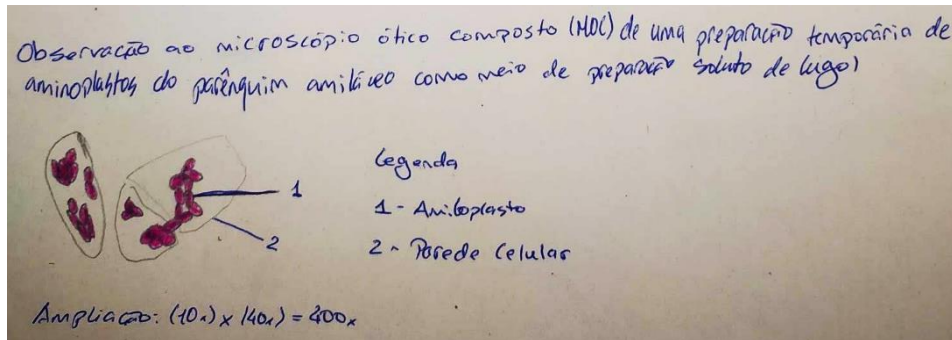 Observação ao microscópio ótico composto (MOC) de uma preparação temporária de
aminoplastos do parênquim amiláceo como meio de preparação soluto de lugol
Legenda
1
1 - Amiloplasto
2
2 - Parede Celular
Ampliação: (10x) x (40x) = 400x